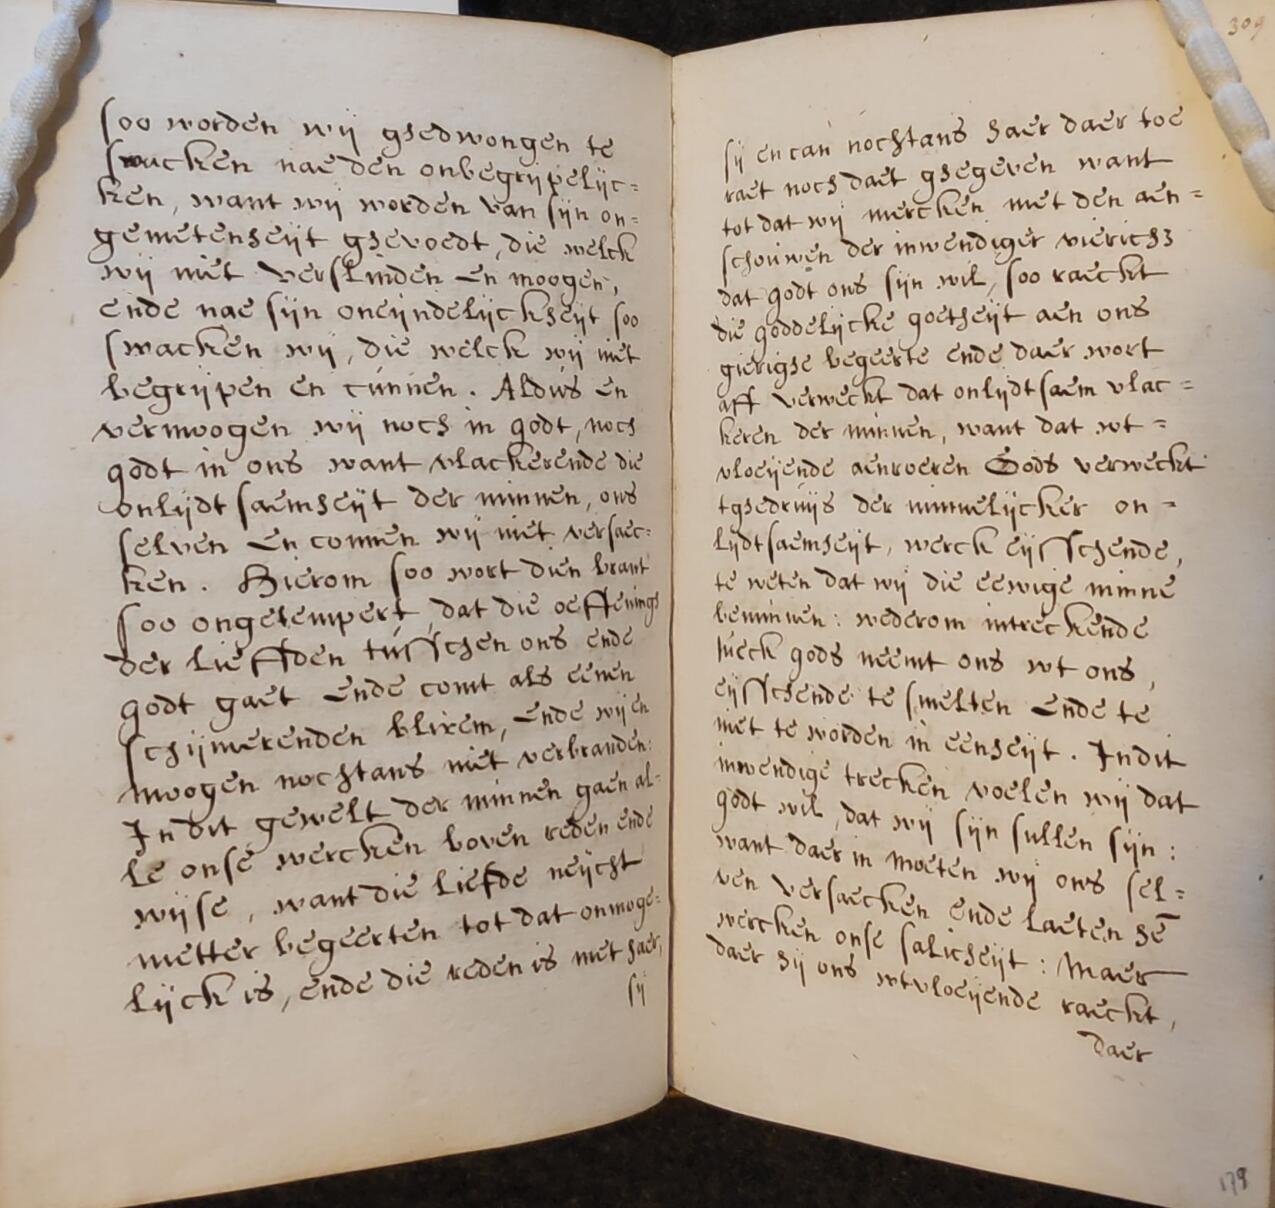 soo worden wij ghedwongen te
smacken nae den onbegrijpelijc=
ken, want wij worden van sijn on=
gemetenheijt ghevoedt, die welck
wij niet verslinden en moogen,
ende nae sijn oneijndelijckheijt soo
smacken wij, die welck wij niet
begrijpen en cúnnen. Aldús en
vermoogen wij noch in godt, noch
godt in ons want vlackerende die
onlijdtsaemheijt der minnen, ons
selven en connen wij niet versaec=
ken. Hierom soo wort dien brant
soo ongetempert, dat die oeffenings
der lieffden tússchen ons ende
godt gaet ende comt als eenen
schijmerenden blixem, ende wij en
moogen nochtans niet verbranden:
In dit gewelt der minnen gaen al=
le onse wercken boven reden ende
wijse, want die liefde neijcht
metter begeerten tot dat onmoge=
lijck is, ende die reden is met haer,
sij
309
sij en can nochtans haer daer toe
raet noch daet ghegeven want
tot dat wij mercken met den aen=
schoúwen der inwendiger viericht
dat godt ons sijn wil, soo raeckt
die goddelijcke goetheijt aen ons
gierighe begeerte ende daer wort
aff verweckt dat onlijdtsaem vlac=
keren der minnen, want dat wt=
vloeijende aenroeren Gods verweckt
tghedrúijs der minnelijcker on=
lijdtsaemheijt, werck eijsschende,
te weten dat wij die eewige minne
beminnen: wederom intreckende
júeck gods neemt ons wt ons,
eijsschende te smelten ende te
niet te worden in eenheijt. In dit
inwendige trecken voelen wij dat
godt wil, dat wij sijn sullen sijn:
want daer in moeten wij ons sel=
ven versaecken ende laeten hē
wercken onse salicheijt: Maer
daer hij ons wtvloeijende raeckt,
daer
178